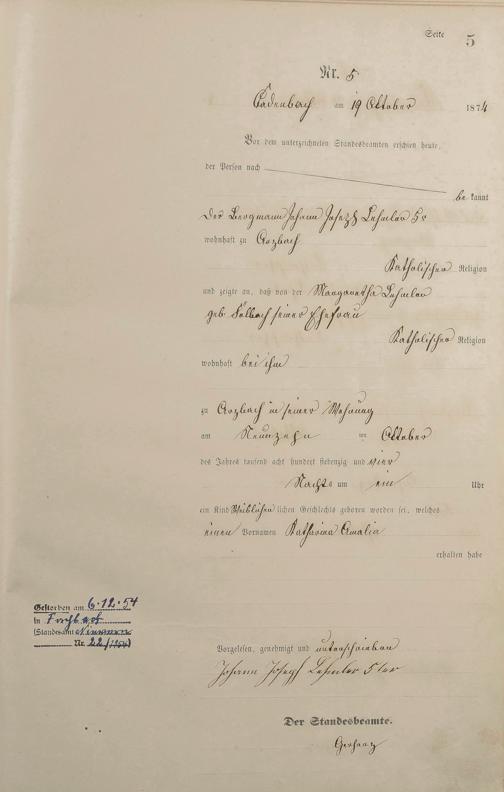 Seite 5
Nr. 5
Cadenbach am 19 Oktober 1874
Vor dem unterzeichneten Standesbeamten erschien heute,
der Person nach
be kannt
der Bergmann Johann Joseph Lehmler 5r
wohnhaft zu Arzbach
Katholischer Religion
und zeigte an, daß von der Margaretha Lehmler
geb seiner Ehefrau
Katholischer Religion
wohnhaft bei ihm
zu Arzbach in seiner Wohnung
am Neunzehn ten Oktober
des Jahres tausend acht hundert siebenzig und vier
Nachts um ein Uhr
ein Kind Weiblichen lichen Geschlechts geboren worden sei, welches
einen Vornamen Katharina Amalia
erhalten habe
Gestorben am 6.12.54
in
(Standesamt
Nr. 22/1954)
Vorgelesen, genehmigt und unterschrieben
Johann Joseph Lehmler 5ter
Der Standesbeamte.